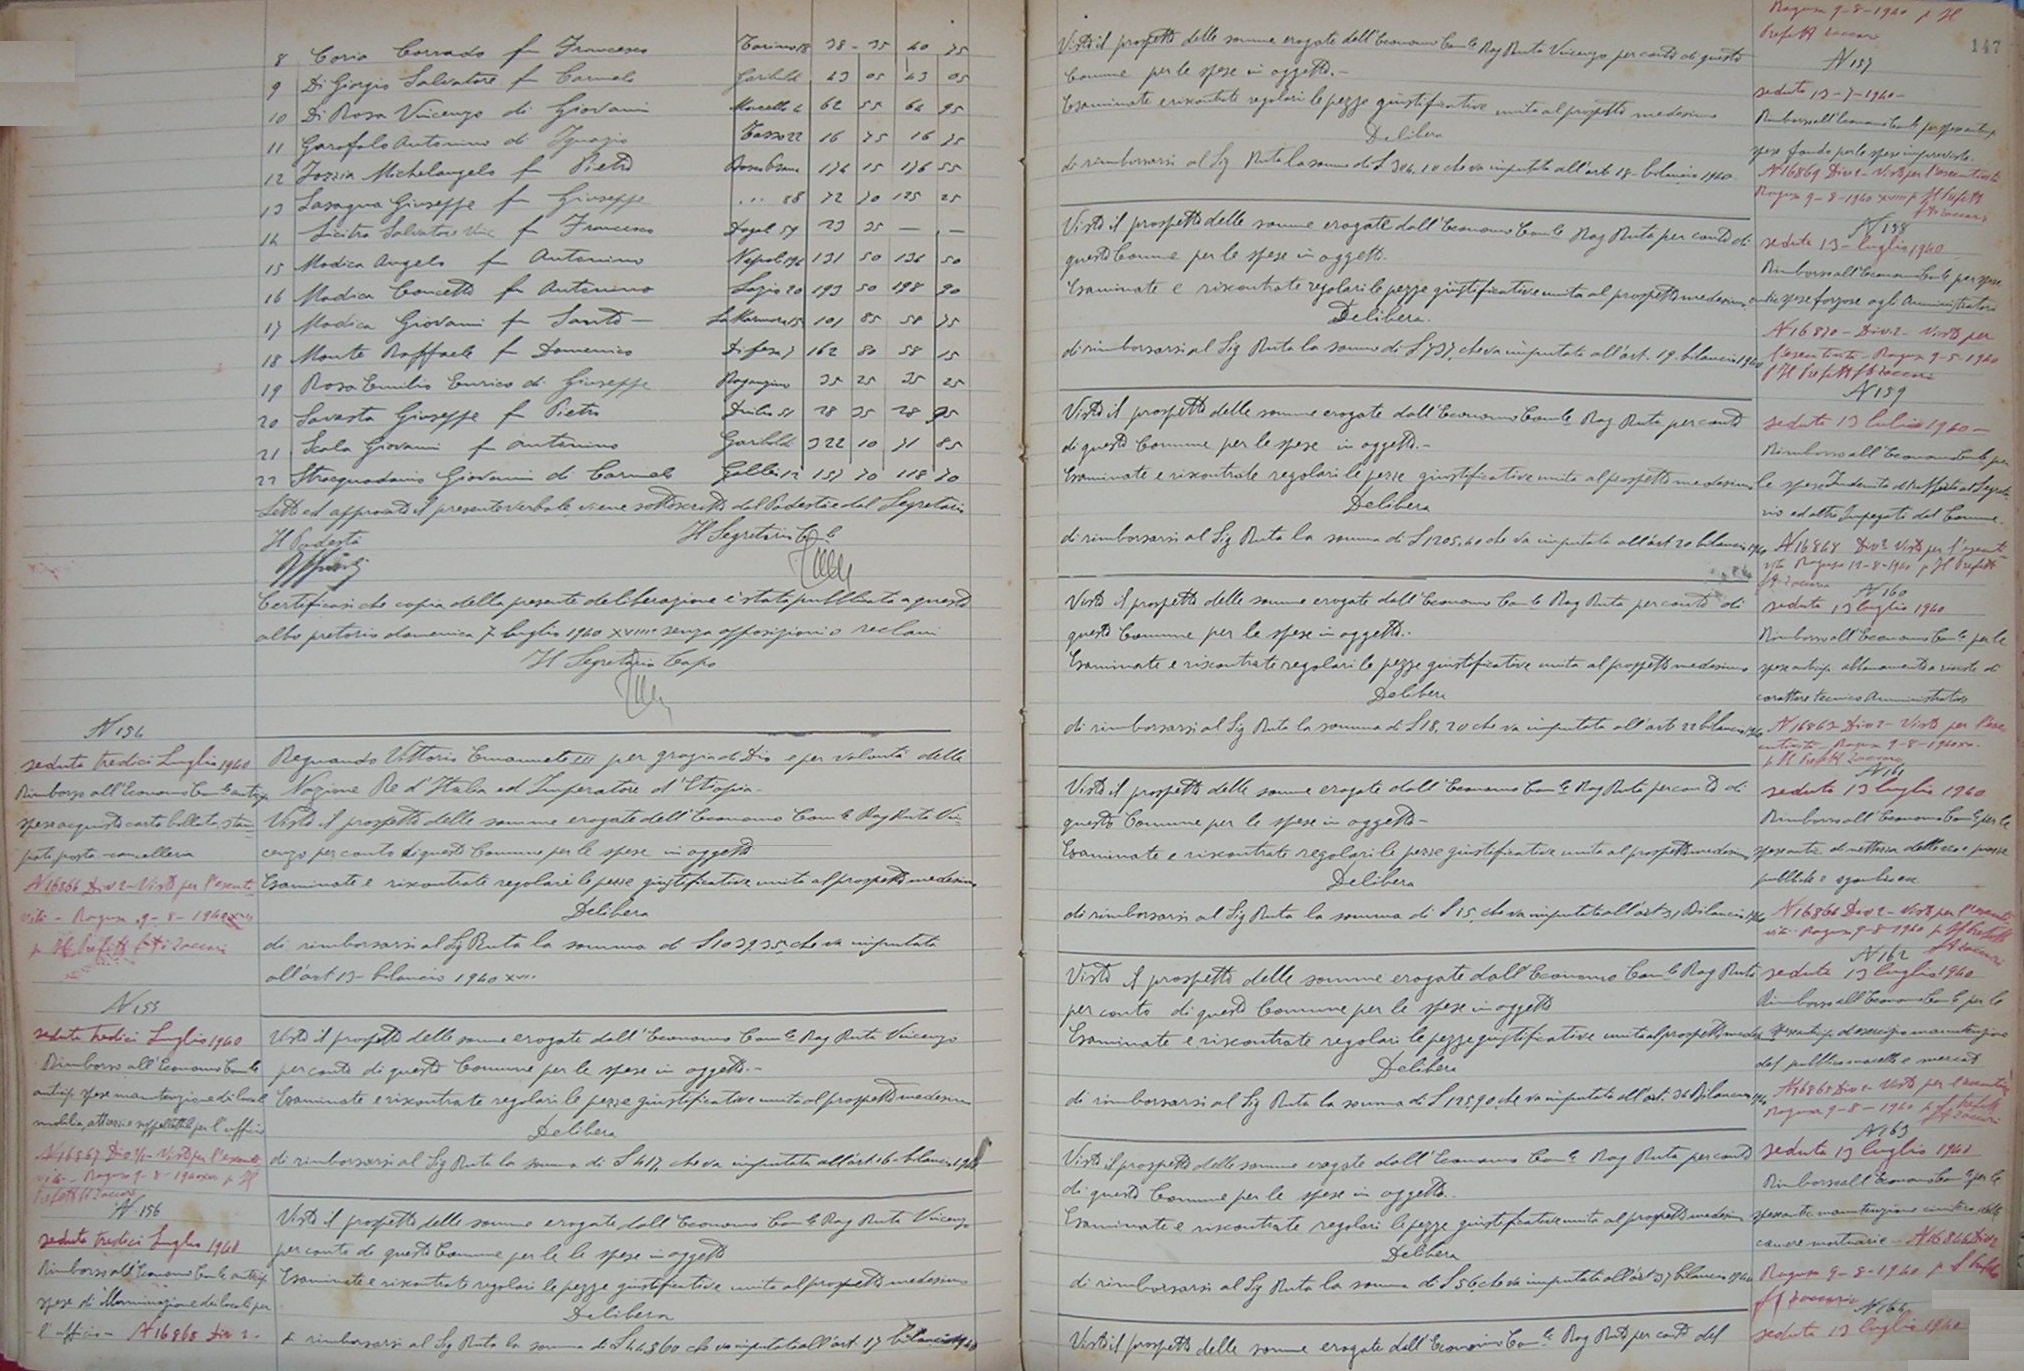 8 Coria Corrado fu Francesco Torino 18 38 - 35 40 75
9 Di Giorgio Salvatore fu Carmelo Garibaldi 43 05 43 05
10 Di Rosa Vincenzo di Giovanni 62 55 64 95
11 Garofalo Antonino di Ignazio Tasso 22 16 75 16 75
12 Michelangelo fu Pietro 176 15 176 55
13 Lasagna Giuseppe fu Giuseppe 88 72 70 125 25
14 Licitra Salvatore fu Francesco 23 35 — —
15 Modica Angelo fu Antonino Napoli 131 50 136 50
16 Modica Concetto fu Antonino Lazio 20 193 50 198 90
17 Modica Giovanni fu Santo — La Marmora 101 85 58 75
18 Monte Raffaele fu Domenico Difesa 7 162 80 58 15
19 Rosa Emilio Enrico di Giuseppe 35 25 35 25
20 Savasta Giuseppe fu Pietro Duilio 51 28 35 28 35
21 Scala Giovanni fu Antonino Garibaldi 322 10 71 85
22 Stracquadanio Giovanni di Carmelo Galilei 12 157 70 118 70
Letto ed approvato il presente verbale viene sottoscritto dal Podestà e dal Segretario
Il Podestà Il Segretario C.le
Certificasi che copia della presente deliberazione è stata pubblicata a questo
albo pretorio domenica 7 luglio 1940 XVIII senza opposizioni o reclami
Il Segretario Capo
N 154
seduta tredici Luglio 1940
Rimborso all'Economo Com.le antic.
spese acquisto carta bollata, stam-
pati, posta - cancelleria
N 16866 Div 2 - Visto per l'esecuti-
vità - Ragusa 9-8-1940 XVIII
p Il Prefetto f.to Zaccari
Regnando Vittorio Emanuele III per grazia di Dio e per volontà della
Nazione Re d'Italia ed Imperatore d'Etiopia -
Visto il prospetto delle somme erogate dall'Economo Com.le Rag Ruta Vin-
cenzo per conto di questo Comune per le spese in oggetto
Esaminate e riscontrate regolari le pezze giustificative unite al prospetto medesimo
Delibera
di rimborsarsi al Sig Ruta la somma di L 1039,35 che va imputata
all'art 13 - bilancio 1940 XVIII
N 155
seduta tredici Luglio 1940
Rimborso all'Economo Com.le
antic. spese manutenzione di locali
mobilia, attrezzi e suppellettili per l'ufficio
N 16867 Div 2 - Visto per l'esecuti-
vità - Ragusa 9-8-1940 XVIII p Il
Prefetto f.to Zaccari
Visto il prospetto delle somme erogate dall'Economo Com.le Rag Ruta Vincenzo
per conto di questo Comune per le spese in oggetto. -
Esaminate e riscontrate regolari le pezze giustificative unite al prospetto medesimo
Delibera
di rimborsarsi al Sig Ruta la somma di L 417, che va imputata all'art 16 - bilancio 1940
N 156
seduta tredici Luglio 1940
Rimborso all'Economo Com.le antic.
spese di illuminazione dei locali per
l'ufficio - N 16868 Div 2 -
Visto il prospetto delle somme erogate dall'Economo Com.le Rag Ruta Vincenzo
per conto di questo Comune per le spese in oggetto
Esaminate e riscontrate regolari le pezze giustificative unite al prospetto medesimo
Delibera
di rimborsarsi al Sig Ruta la somma di L 448,60 che va imputata all'art 17 bilancio 1940
147
Ragusa 9-8-1940 p Il
Prefetto Zaccari
N 157
seduta 13-7-1940 -
Rimborso all'Economo Com.le per spese antic.
spese fondo per le spese impreviste.
N 16869 Div 2 - Visto per l'esecutività
Ragusa 9-8-1940 XVIII p Il Prefetto
f.to Zaccari
Visto il prospetto delle somme erogate dall'Economo Com.le Rag Ruta Vincenzo per conto di questo
Comune per le spese in oggetto. -
Esaminate e riscontrate regolari le pezze giustificative unite al prospetto medesimo
Delibera
di rimborsarsi al Sig Ruta la somma di L 304,10 che va imputata all'art 18 - bilancio 1940
N 158
seduta 13 - luglio 1940
Rimborso all'Economo Com.le per spese
antic. spese forzose agli Amministratori
N 16870 - Div. 2 - Visto per
l'esecutività - Ragusa 9-8-1940
p Il Prefetto f.to Zaccari
Visto il prospetto delle somme erogate dall'Economo Com.le Rag Ruta per conto di
questo Comune per le spese in oggetto.
Esaminate e riscontrate regolari le pezze giustificative unite al prospetto medesimo
Delibera.
di rimborsarsi al Sig Ruta la somma di L 737, che va imputata all'art. 19 - bilancio 1940
N 159
seduta 13 luglio 1940 -
Rimborso all'Economo Com.le per
le spese Indennità di trasferta al Segreta-
rio ed altri Impiegati del Comune.
N 16848 Div 2 Visto per l'esecuti-
vità Ragusa 12-8-1940 p Il Prefetto
f.to Zaccari
Visto il prospetto delle somme erogate dall'Economo Com.le Rag Ruta per conto
di questo Comune per le spese in oggetto. -
Esaminate e riscontrate regolari le pezze giustificative unite al prospetto medesimo
Delibera
di rimborsarsi al Sig Ruta la somma di L 1205,40 che va imputata all'art 20 bilancio 1940
N 160
seduta 13 luglio 1940
Rimborso all'Economo Com.le per le
spese antic. abbonamento a riviste di
carattere tecnico Amministrativo
N 16863 Div 2 - Visto per l'ese-
cutività - Ragusa 9-8-1940 XVIII.
p Il Prefetto Zaccari
Visto il prospetto delle somme erogate dall'Economo Com.le Rag Ruta per conto di
questo Comune per le spese in oggetto. -
Esaminate e riscontrate regolari le pezze giustificative unite al prospetto medesimo
Delibera
di rimborsarsi al Sig Ruta la somma di L 18,20 che va imputata all'art 22 bilancio 1940
N 161
seduta 13 luglio 1940
Rimborso all'Economo Com.le per le
spese antic. di nettezza delle vie e piazze
pubbliche e
N 16864 Div 2 - Visto per l'esecuti-
vità - Ragusa 9-8-1940 p Il Prefetto
f.to Zaccari
Visto il prospetto delle somme erogate dall'Economo Com.le Rag Ruta per conto di
questo Comune per le spese in oggetto -
Esaminate e riscontrate regolari le pezze giustificative unite al prospetto medesimo
Delibera
di rimborsarsi al Sig Ruta la somma di L 15, che va imputata all'art 31 Bilancio 1940
N 162
seduta 13 luglio 1940
Rimborso all'Economo Com.le per le
spese antic. d'esercizio manutenzione
del pubblico macello e mercati
N 16865 Div 2 - Visto per l'esecutività
Ragusa 9-8-1940 p Il Prefetto
f.to Zaccari
Visto il prospetto delle somme erogate dall'Economo Com.le Rag Ruta
per conto di questo Comune per le spese in oggetto
Esaminate e riscontrate regolari le pezze giustificative unite al prospetto medes.
Delibera
di rimborsarsi al Sig Ruta la somma di L 125,90, che va imputata all'art. 36 Bilancio 1940
N 163
seduta 13 luglio 1940
Rimborso all'Economo Com.le per le
spese antic. manutenzione cimitero delle
camere mortuarie - N 16846 Div 2
Ragusa 9-8-1940 p Il Prefetto
f.to Zaccari
Visto il prospetto delle somme erogate dall'Economo Com.le Rag Ruta per conto
di questo Comune per le spese in oggetto. -
Esaminate e riscontrate regolari le pezze giustificative unite al prospetto medesimo
Delibera
di rimborsarsi al Sig Ruta la somma di L 56, che va imputata all'art 37 bilancio 1940
N 164
seduta 13 luglio 1940
Visto il prospetto delle somme erogate dall'Economo Com.le Rag Ruta per conto del